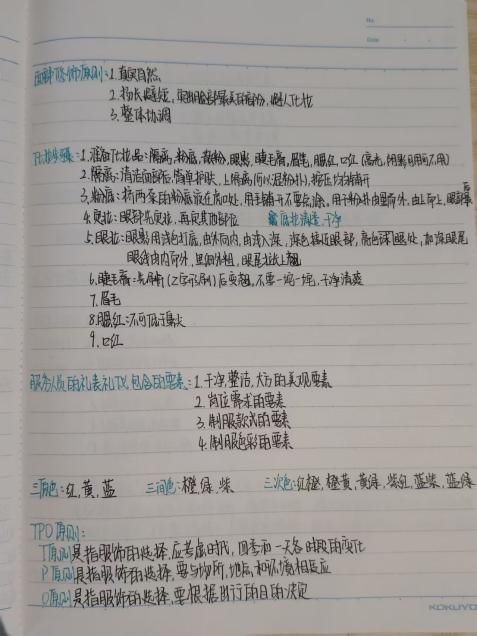 No.
Date
面部修饰原则:1.真实自然
2.扬长避短,突出脸部最美的部份,避人化妆
3.整体协调
化妆步骤:1.准备化妆品:隔离,粉底,散粉,眼影,睫毛膏,眉笔,腮红,口红(高光,阴影可用可不用)
2.隔离:清洁面部后,简单护肤,上隔离(可以湿粉扑),按压均匀铺开
3.粉底:挤两泵的粉底液在虎口处,用手铺开不要念涂,用手粉扑由里而外,由上而上,眼部
4.定妆:眼部先定妆,再定其他部位 底妆清透,干净
5.眼妆:眼影用浅色打底,由外向内,由浅入深,深色接近眼部,高色深凹处,加深眼尾
眼线由内而外,里细外粗,眼尾拉长上翘
6.睫毛膏:先用前(Z字形刷)后要翘,不要一坨一坨,干净清爽
7.眉毛
8.腮红:不可低于鼻尖
9.口红
服务人员的礼表礼仪,包含的要素:1.干净,整洁,大方的美观要素
2.岗位需求的要素
3.制服款式的要素
4.制服色彩的要素
三原色:红,黄,蓝 三间色:橙,绿,紫 三次色:红橙,橙黄,黄绿,紫红,蓝紫,蓝绿
TPO原则:
T原则是指服饰的选择,应考虑时代,四季和一天各时段的变化
P原则是指服饰的选择,要与场所,地点,和环境相适应
O原则是指服饰的选择,要根据出行的目的决定
KOKUYO